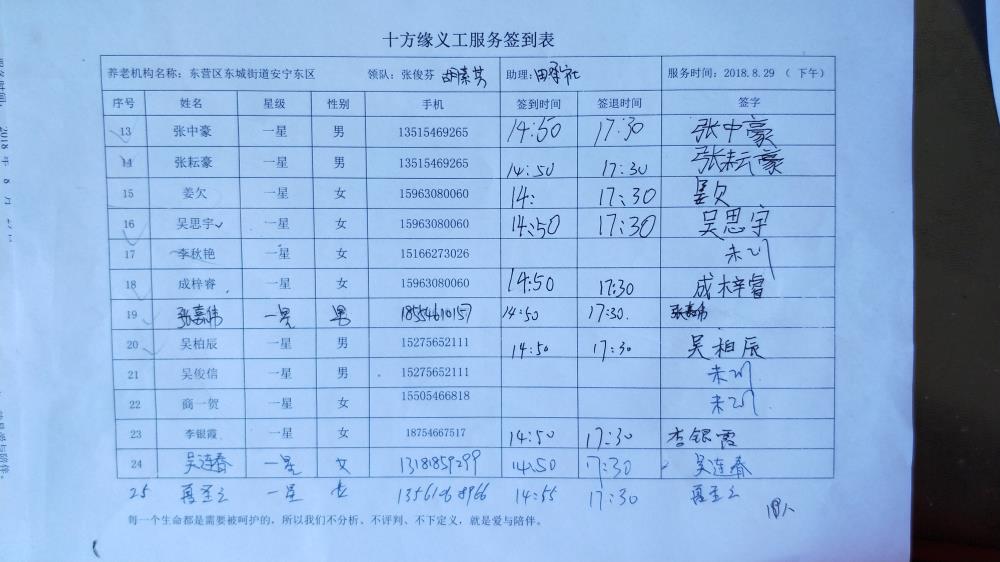 十方缘义工服务签到表
养老机构名称：东营区东城街道安宁东区 领队：张俊芬 胡素其 助理：田承社 服务时间：2018.8.29 （下午）
序号 姓名 星级 性别 手机 签到时间 签退时间 签字
13 张中豪 一星 男 13515469265 14:50 17:30 张中豪
14 张耘豪 一星 男 13515469265 14:50 17:30 张耘豪
15 姜欠 一星 女 15963080060 14: 17:30 姜欠
16 吴思宇 一星 女 15963080060 14:50 17:30 吴思宇
17 李秋艳 一星 女 15166273026 未到
18 成梓睿 一星 女 15963080060 14:50 17:30 成梓睿
19 张嘉伟 一星 男 18554610157 14:50 17:30. 张嘉伟
20 吴柏辰 一星 男 15275652111 14:50 17:30 吴柏辰
21 吴俊信 一星 男 15275652111 未到
22 商一贺 一星 女 15505466818 未到
23 李银霞 一星 女 18754667517 14:50 17:30 李银霞
24 吴连春 一星 女 13181859299 14:50 17:30 吴连春
25 一星 女 14:55 17:30
每一个生命都是需要被呵护的，所以我们不分析、不评判、不下定义，就是爱与陪伴。